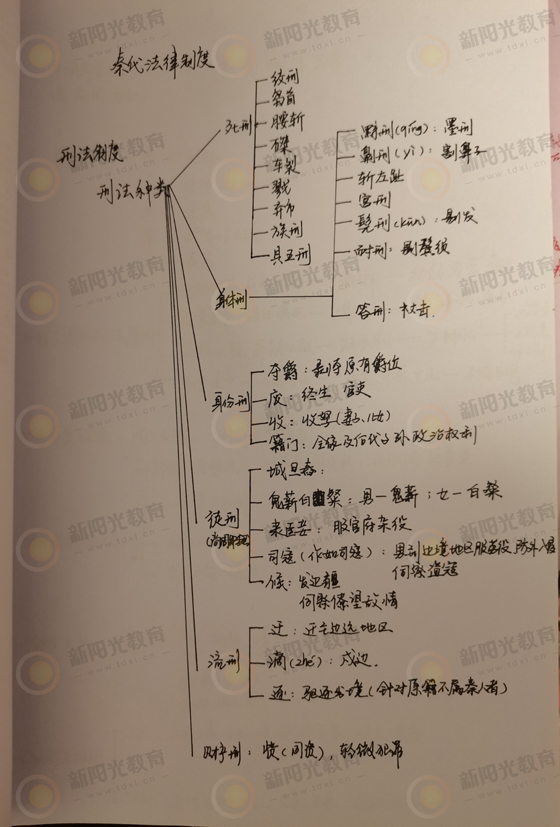 秦代法律制度
刑法制度
刑法种类
死刑
绞刑
枭首
腰斩
磔
车裂
戮
弃市
族刑
具五刑
身体刑
黥刑(qíng)：墨刑
劓刑(yì)：割鼻子
斩左趾
宫刑
髡刑(kūn)：剔发
耐刑：剔鬓须
笞刑：杖击.
身份刑
夺爵：剥夺原有爵位
废：终生 官吏
收：收孥(妻、儿女)
籍门：全家及后代子孙政治权利
徒刑
城旦舂：
鬼薪白粲：男—鬼薪；女—白粲
隶臣妾：服官府杂役
司寇(作如司寇)：男到边境地区服苦役,防外入侵
伺察盗寇
候：发边疆
伺察侯望敌情
流刑
迁：迁去边远地区
谪(zhé)：戍边.
逐：驱逐出境(针对原籍不属秦人者)
财产刑：赀(同资),轻微犯罪
新阳光教育
www.tdxl.cn